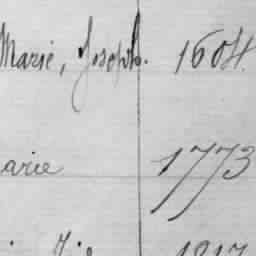 Marie, Joseph. 1604.
arie 1773